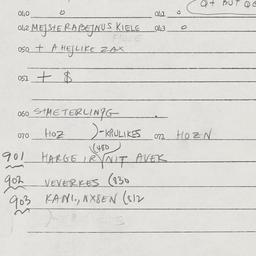 040 0 041 0
042 MEJSTERABEJNUS KIELE 043 0
050 + AHEJLIKE ZAX
051 + $
060 STMETERLINGG
070 HOZ )-KRULIKES 072 HOZN
(480)
901 HARGE IR NIT AVEK
902 VEVERKES (830
903 KANI., NXBEN (812